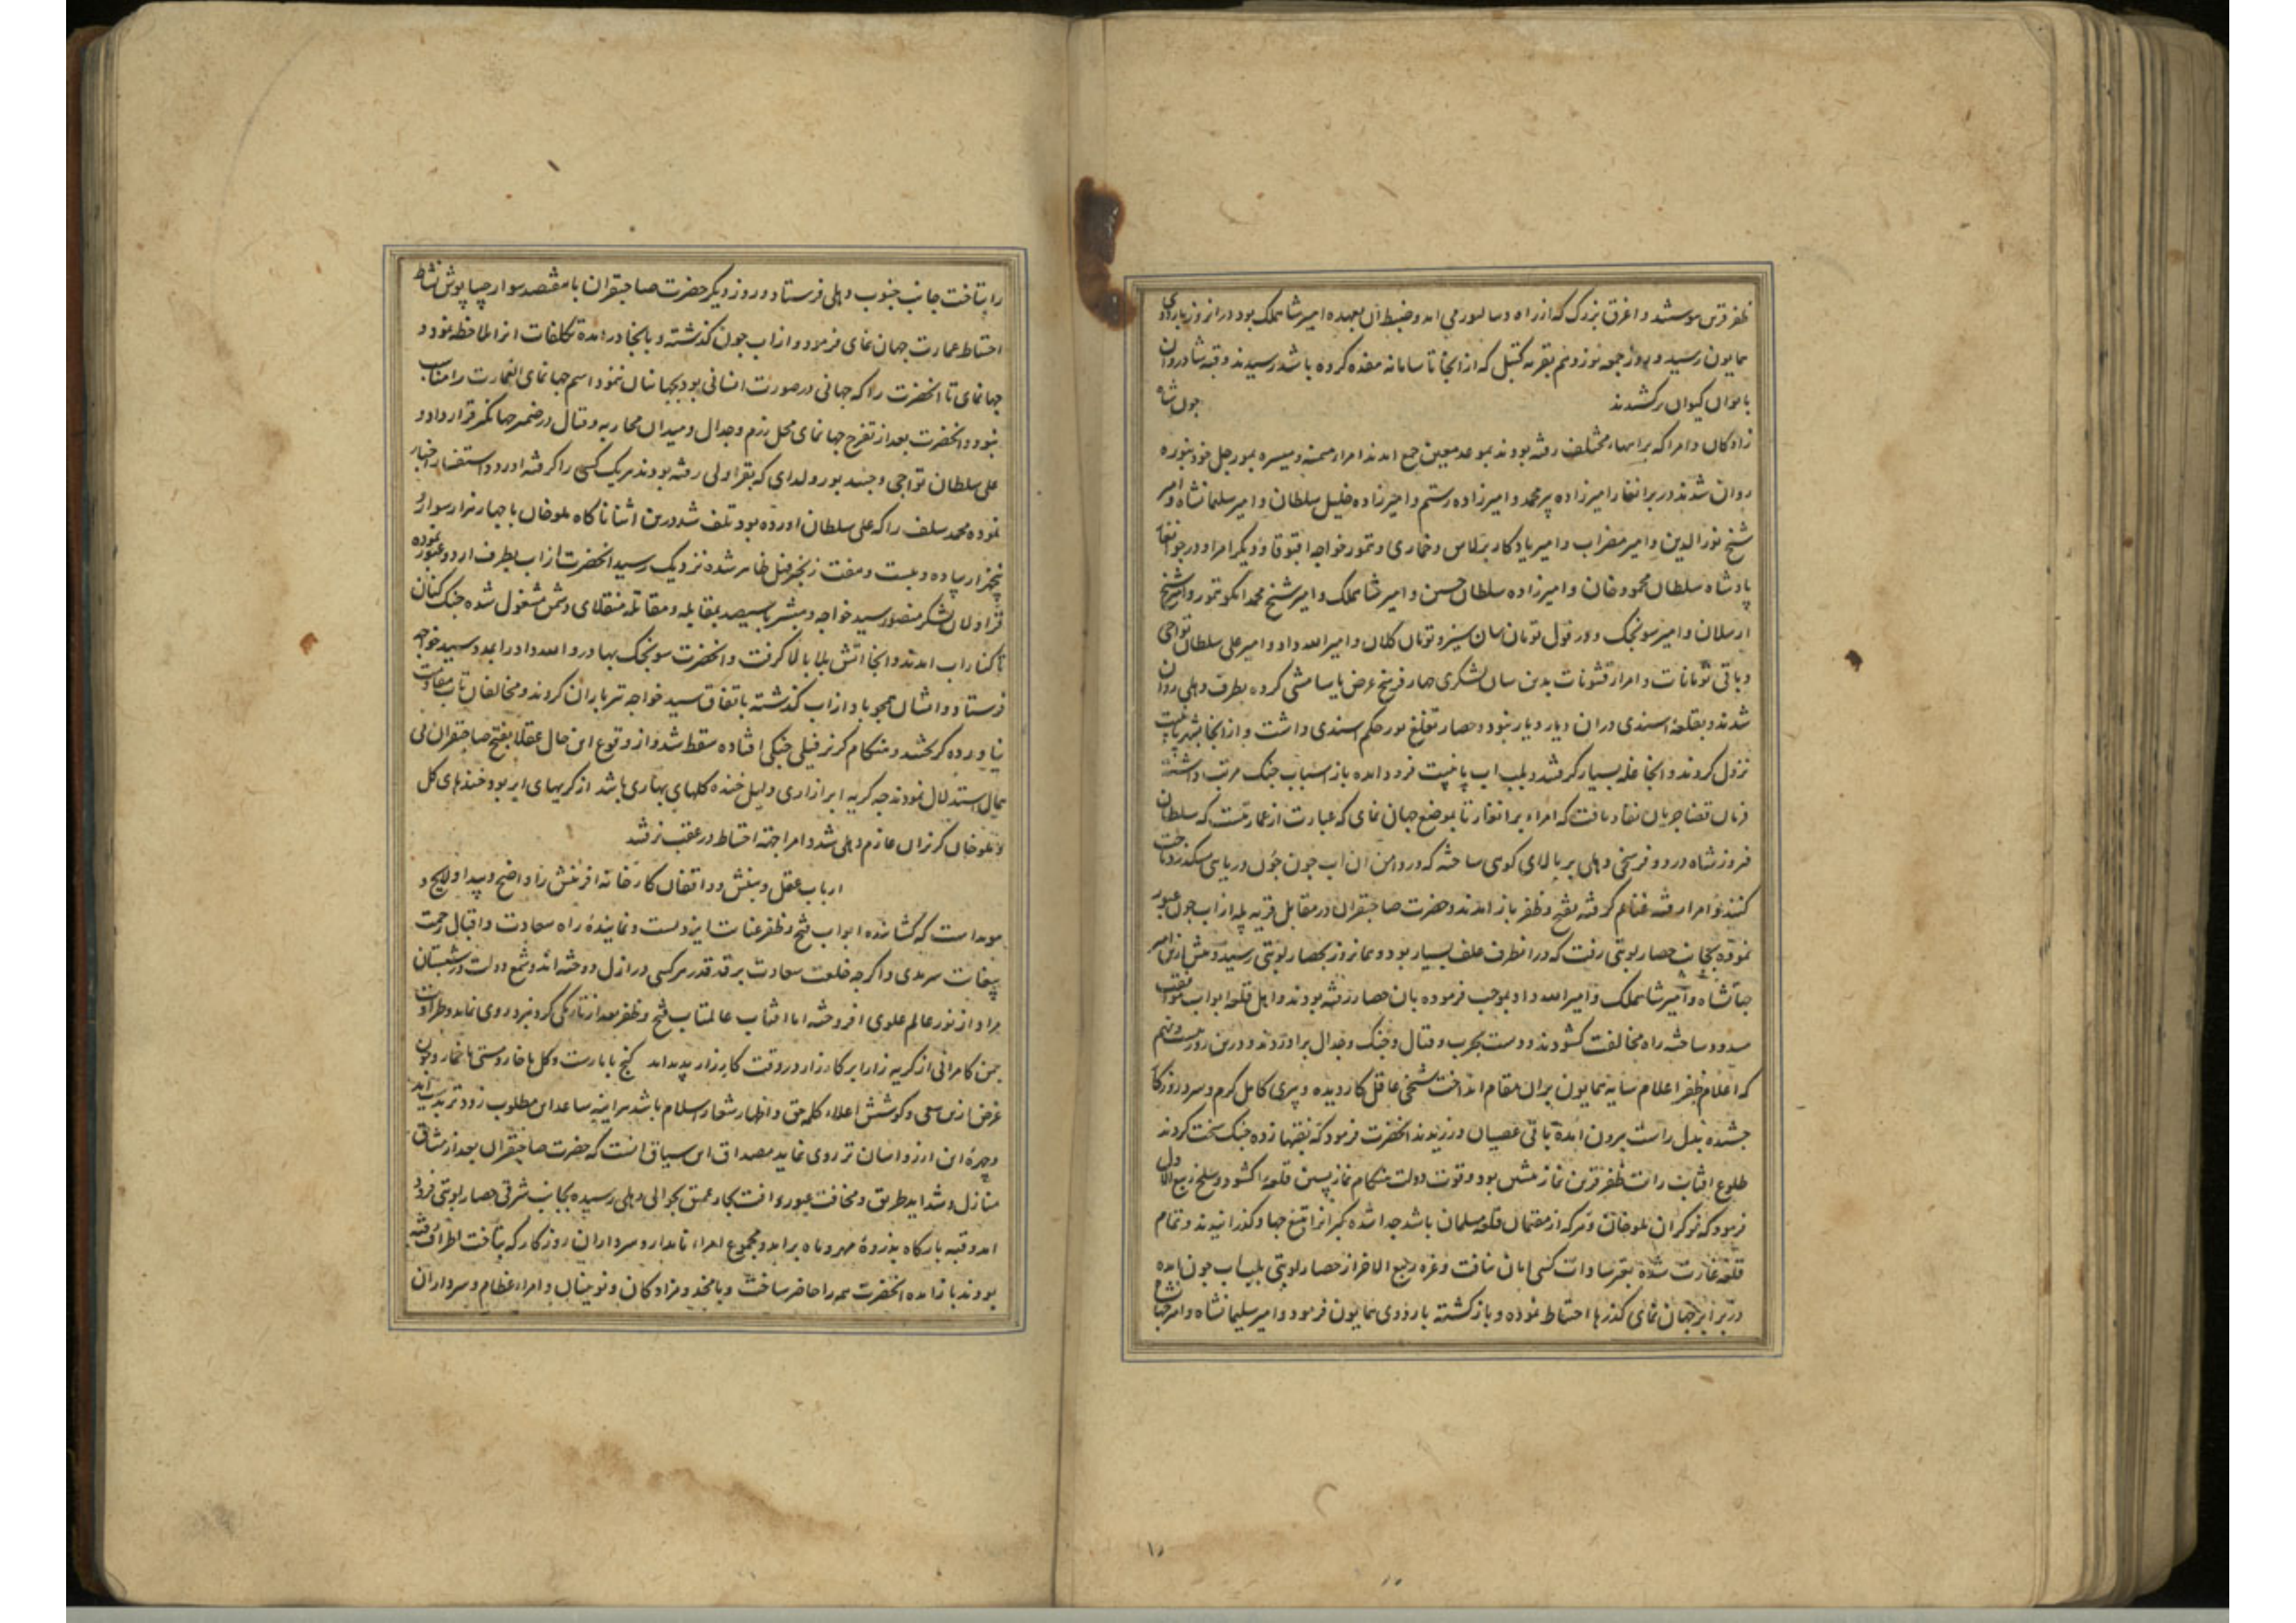 ظفر قرین پیوستند و اغرق بزرگ که از راه دیبالپور می امد و ضبط آن بعهده امیر شاهملک بود در انروز باردوی
همایون رسید و بروز جمعه نوزدهم بقریه کتیل که از انجا تا سامانه هفده کروه باشد رسیدند و قبه شادروان
بایوان کیوان برکشیدند جون شاه
زادکان و امرا که براههاء مختلف رفته بودند بموعد معین جمع امدند امراء میمنه و میسره بمورجل خود بتوره
روان شدند در برانغار امیرزاده پیر محمد و امیرزاده رستم و امیرزاده خلیل سلطان و امیر سلیمانشاه و امیر
شیخ نورالدین و امیر مضراب و امیر یادکار برلاس و قماری و تمور خواجه اقبوقا و دیکر امرا و در جوانغار
پادشاه سلطان محمود خان و امیرزاده سلطان حسین و امیر شاهملک و امیر شیخ محمد ایکو تمور و امیر شیخ
ارسلان و امیر سونجک و در قول تومان سان سیز و تومان کلان و امیر الله داد و امیر علی سلطان تواجی
و باقی تومانات و امراء قشونات بدین سان لشکری چهار فرسخ عرض یاسامشی کرده بطرف دهلی روان
شدند و بقلعه اسندی در ان دیار دیار نبود و حصار تغلغ پور حکم اسندی داشت و از انجا بشهر پانی پت
نزول کردند و انجا غله بسیار کرفتند و بلب اب پانی پت فرود امده باز اسباب جنک مرتب داشته
فرمان قضا جریان نفاذ یافت که امراء برانغار تا بموضع جهان نمای که عبارت از عمارتیست که سلطان
فیروز شاه در دو فرسخی دهلی بر بالای کوهی ساخته که در دامن آن اب جون چون دریایی میکذرد تاخت
کنند و امرا رفته غنایم کرفته بفتح و ظفر باز امدند و حضرت صاحبقران در مقابل قریه پله از اب جون عبور
نموده بجانب حصار لونی رفت که در انطرف علف بسیار بود و همانروز بحصار لونی رسید و پیش ازین امیر
جهانشاه و امیر شاهملک و امیر الله داد بموجب فرموده بان حصار رفته بودند و اهل قلعه ابواب موافقت
مسدود ساخته راه مخالفت کشودند و دست بحرب و قتال و جنک و جدال براوردند و درین روز بیست و نهم
که اعلام ظفر اعلام سایه همایون بران مقام انداخت شیخی عاقل کار دیده و پیری کامل کرم و سرد روزکار
چشیده بدل راست بیرون امده باقی عصیان ورزیدند انحضرت فرمود که نقبها زده جنک سخت کردند
طلوع افتاب رایت ظفر قرین نماز پیشین بود و قوت دولت هنکام نماز پسین قلعه را کشود و سلخ ربیع الاول
فرمود که نوکران ملو خان و هرکه از مقیمان قلعه مسلمان باشد جدا شده کبرانرا بتیغ جهاد کذرانیدند و تمام
قلعه غارت شده بغیر سادات کسی امان نیافت و غره ربیع الاخر از حصار لونی بلب اب جون امده
در برابر جهان نمای کذرها احتیاط نموده و بازکشته باردوی همایون فرمود و امیر سلیمانشاه و امیر جهانشاه
را بتاخت جانب جنوب دهلی فرستاد و روز دیکر حضرت صاحبقران با هفتصد سوار جیبا پوش نشاط
احتیاط عمارت جهان نمای فرمود و از اب جون کذشته و بانجا در امده تکلفات انرا ملاحظه نمود و
جهانمای تا انحضرت را که جهانی در صورت انسانی بود بجهانیان ننمود اسم جهانمای انعمارت را مناسب
نبود و انحضرت بعد از تفرج جهانمای محل رزم و جدال و میدان محاربه و قتال در ضمیر جهانکیر قرار داد و
علی سلطان تواجی و جنید بورولدای که بقراولی رفته بودند هر یک کسی را کرفته اورد و استفسار اخبار
نموده محمد سلف را که علی سلطان اورده بود تلف شد درین اثنا ناکاه ملو خان با چهار هزار سوار و
پنجهزار پیاده و بیست و هفت زنجیر فیل ظاهر شده نزدیک رسید انحضرت از اب بطرف اردو عبور نموده
قراولان لشکر منصور سید خواجه و مبشر با سیصد بمقابله و مقاتله منقلای دشمن مشغول شده جنک کنان
تا کنار اب امدند و انجا اتش بلا بالا کرفت و انحضرت سونجک بهادر و الله داد را بمدد سید خواجه
فرستاد و ایشان همچو باد از اب کذشته باتفاق سید خواجه تیرباران کردند و مخالفان تاب مقاومت
نیاورده کریختند و هنکام کریز فیلی جنکی افتاده سقط شد و از وقوع این حال عقلا بفتح صاحبقران بی
همال استدلال نمودند چه کریه ابر ازاری دلیل خنده کلهای بهاری باشد از کریهای ابر بود خندهای کل
و ملو خان کریزان عازم دهلی شد و امرا جهة احتیاط در عقب نرفتند
ارباب عقل و بینش و واقفان کارخانه افرینش را واضح و پیدا و لایح و
هویداست که کشاینده ابواب فتح و ظفر عنایت ایزدست و نماینده راه سعادت و اقبال رحمت
بیغایت سرمدی و اکر چه خلعت سعادت بر قد قدر هر کسی در ازل دوخته اند و شمع دولت در شبستان
مراد از نور عالم علوی افروخته اما افتاب عالمتاب فتح و ظفر بعد از تاریکی کرد نبرد روی نماید و طراوت
چمن کامرانی از کریه زار ابر کارزار در وقت کارزار پدید اید کنج با مارست و کل با خار و مستی با خمار و چون
غرض ازین سعی و کوشش اعلاء کلمه حق و اظهار شعار اسلام باشد هراینه ساعد این مطلوب زودتر بدست اید
و چهرۀ این ارزو اسان تر روی نماید مصداق این سیاق انست که حضرت صاحبقران بعد از مشاق
منازل و شداید طریق و مخافت عبور و افت بحار عمیق بحوالی دهلی رسیده بجانب شرقی حصار لونی فرود
امد و قبه بارکاه بذروۀ مهر و ماه برامد و مجموع امراء نامدار و سرداران روزکار که بتاخت اطراف رفته
بودند باز امده انحضرت همه را حاضر ساخت و با مخدومزادکان و نوینان و امراء عظام و سرداران